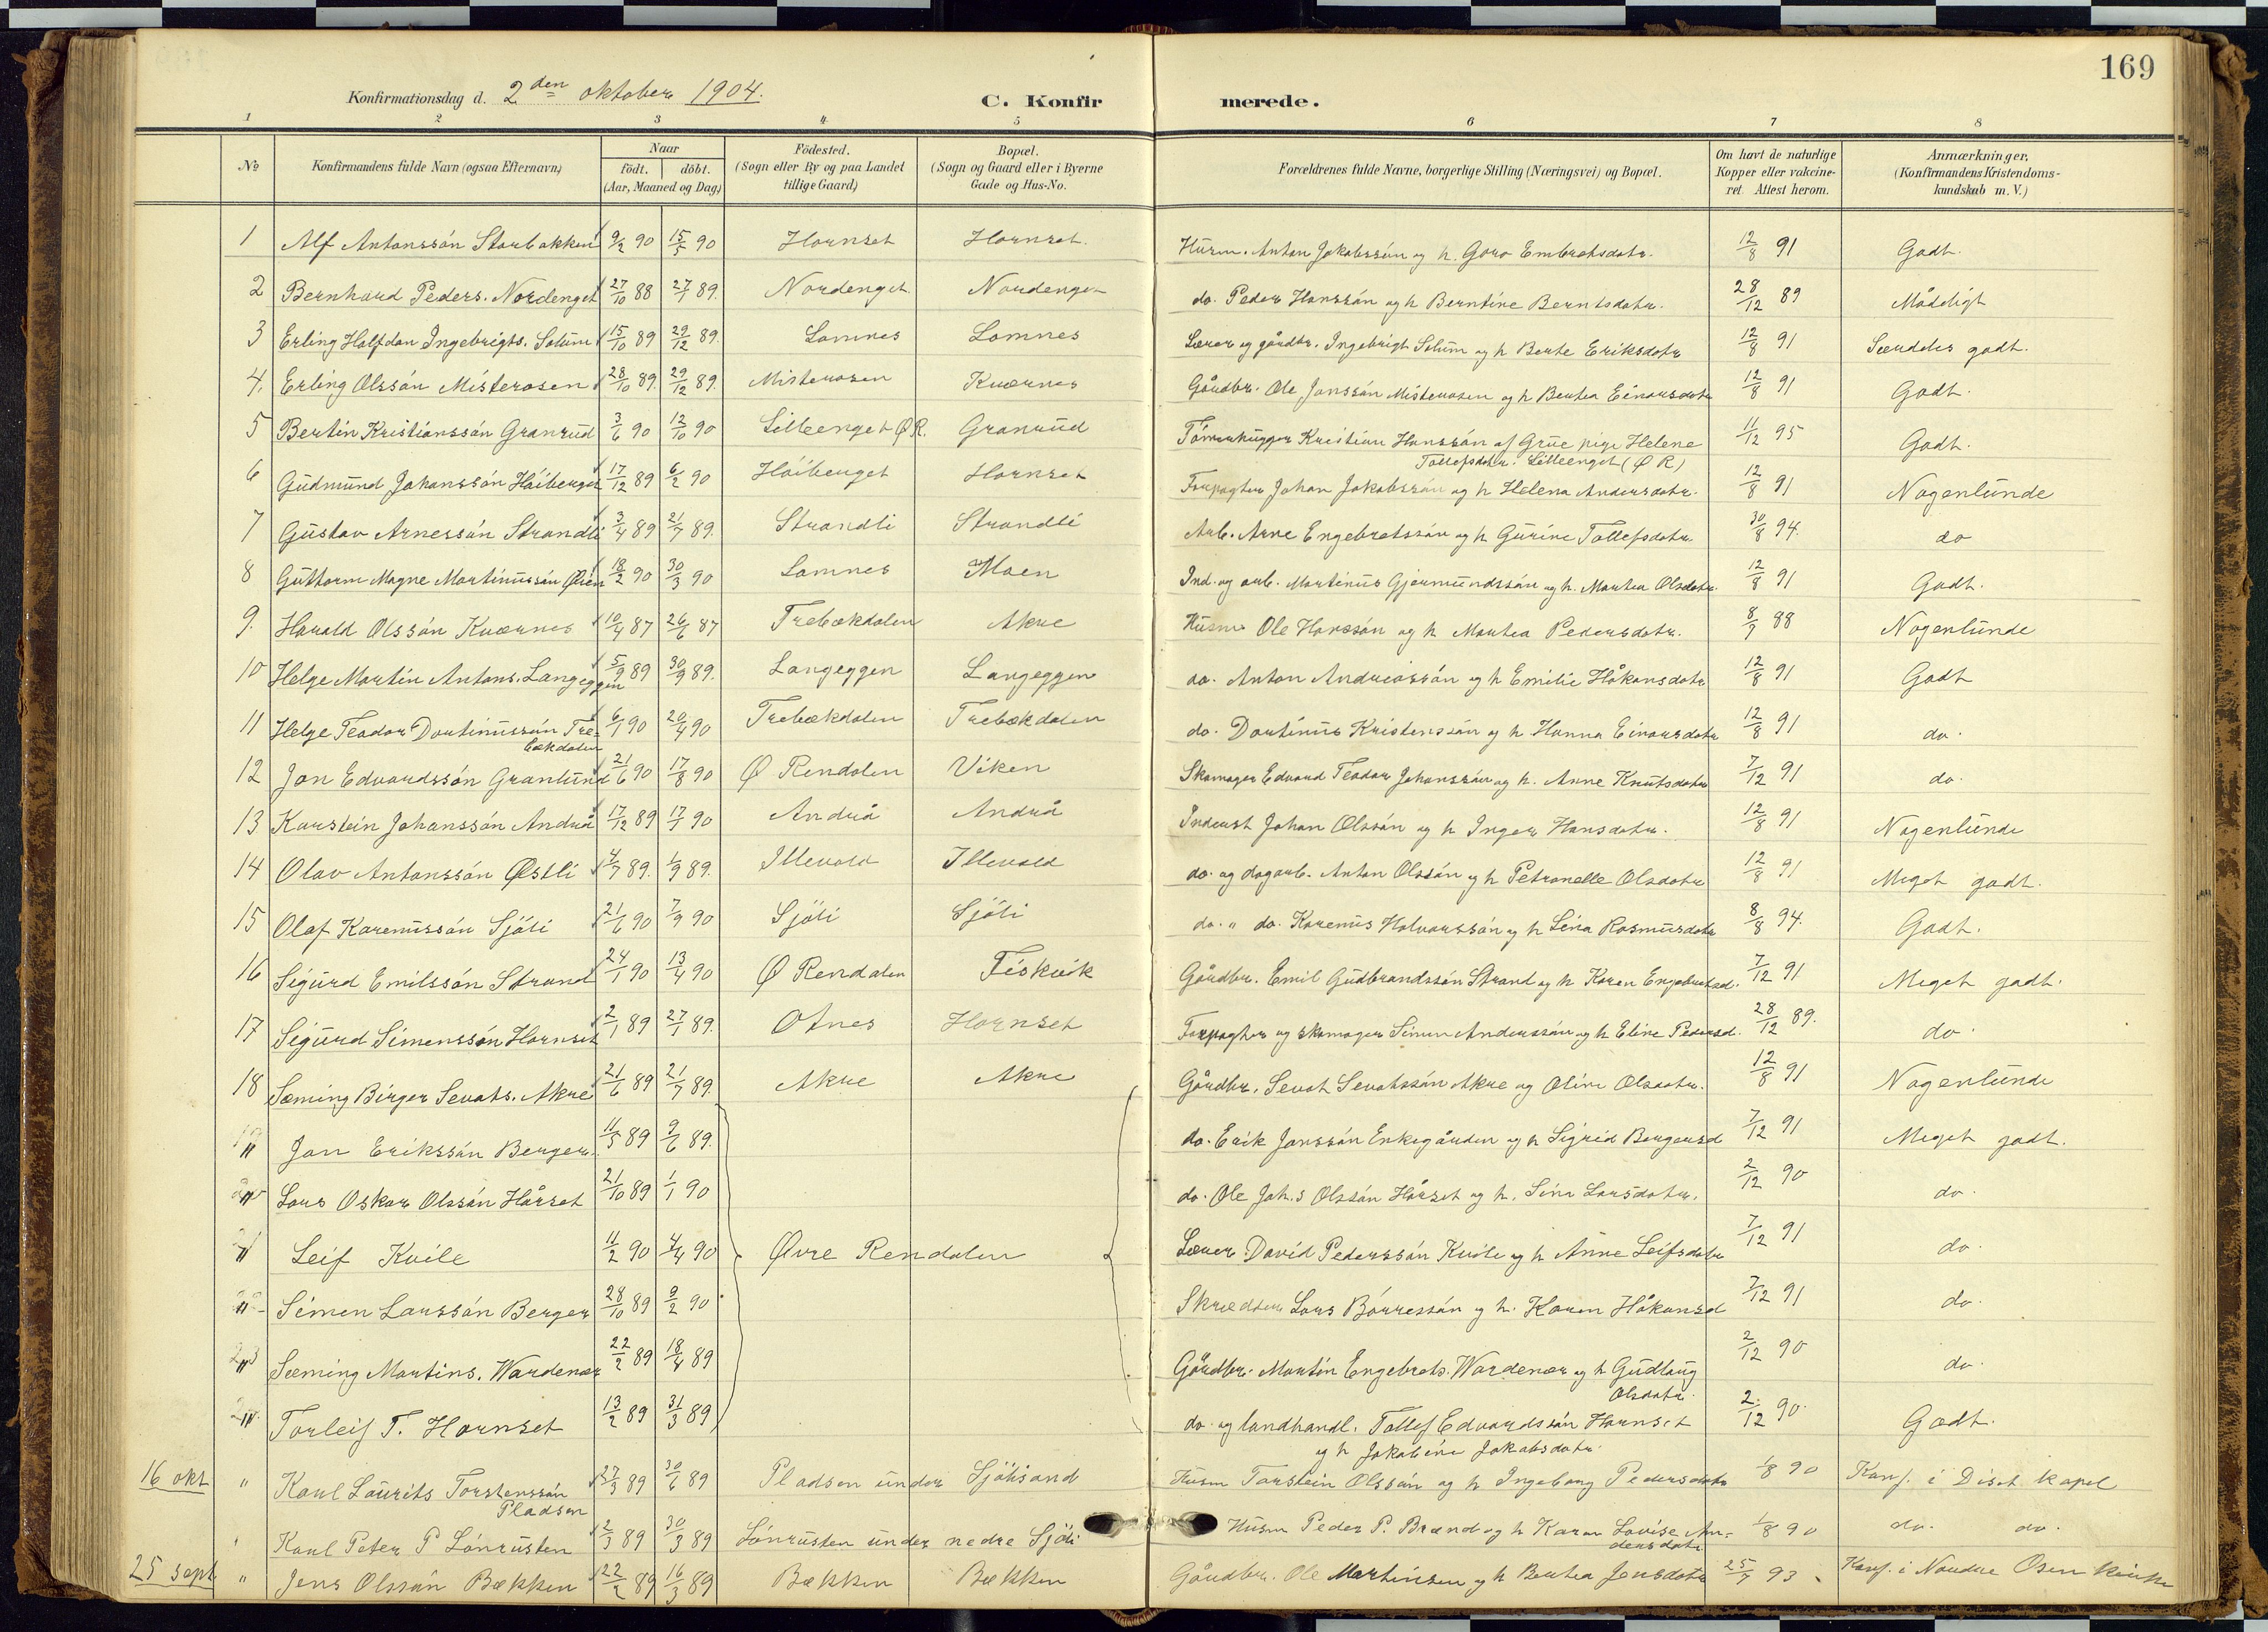 169
Konfirmationsdag d. 2den oktober 1904.
C. Konfirmerede.
1 2 3 4 5 6 7 8
No
Konfirmandens fulde Navn (ogsaa Efternavn)
Naar
födt. döbt.
(Aar, Maaned og Dag)
Födested.
(Sogn eller By og paa Landet
tillige Gaard)
Bopæl.
(Sogn og Gaard eller i Byerne
Gade og Hus-No.
Forældrenes fulde Navne, borgerlige Stilling (Næringsvei) og Bopæl.
Om havt de naturlige
Kopper eller vakcine-
ret. Attest herom.
Anmærkninger.
(Konfirmandens Kristendoms-
kundskab m. V.)
1 Alf Antonssön Storbakken 9/2 90 15/5 90 Hornset Hornset. Husm. Anton Jakobssön og h. Goro Embretsdatr. 12/8 91 Godt.
2 Bernhard Peders. Nordenget 27/10 88 27/1 89. Nordenget Nordenget do. Peder Hanssön og h Berntine Berntsdatr. 28/12 89 Mådeligt
3 Erling Halfdan Ingebrigts. Solum 15/10 89 29/12 89. Lomnes Lomnes Lærer og gårdbr. Ingebrigt Solum og h Berte Eriksdatr 12/8 91 Særdeles godt.
4. Erling Olssön Misterosen 28/10 89. 29/12 89. Misterosen Kværnes Gårdbr. Ole Jonssön Misterosen og h Bertea Einarsdatr 12/8 91 Godt.
5 Bertin Kristianssön Granrud 3/6 90 12/10 90 Lilleenget ØR. Granrud Tömmerhugger Kristian Hanssön af Grue pige Helene 11/12 95 Godt.
Tollefsdatr. Lilleenget (Ø R)
6 Gudmund Johanssön Höiberget 17/12 89 6/2 90 Höiberget Hornset Forpagter Johan Jakobssön og h Helena Andersdatr. 12/8 91 Nogenlunde
7 Gustav Arnessön Strandli 3/4 89 21/7 89. Strandli Strandli Arb. Arne Engebretssön og h Gurine Tollefsdatr 30/8 94. do
8 Guttorm Magne Martinussön Øien 18/2 90 30/3 90 Lomnes Moen Ind. og arb. Martinus Gjermundssön og h. Martea Olsdatr. 12/8 91 Godt.
9. Harald Olssön Kværnes 10/4 87 26/6 87 Trebækdalen Akre Husm. Ole Hanssön og h Martea Pedersdatr. 8/9 88 Nogenlunde
10 Helge Martin Antons. Langeggen 5/9 89 30/9 89. Langeggen Langeggen do. Anton Andreassön og h Emilie Håkonsdatr 12/8 91 Godt
11 Helge Teodor Dortinussön Tre- 6/1 90 20/4 90 Trebækdalen Trebækdalen do. Dortinus Kristenssön og h Hanna Einarsdatr 12/8 91 do.
bækdalen
12 Jon Edvardssön Granlund 21/6 90 17/8 90 Ø Rendalen Viken Skomager Edvard Teodor Johanssön og h. Anne Knutsdatr 7/12 91 do.
13 Karstein Johanssön Andrå 17/12 89 17/1 90 Andrå Andrå Inderst Johan Olssön og h Inger Hansdatr. 12/8 91 Nogenlunde
14 Olav Antonssön Østli 4/7 89. 1/9 89. Illevold Illevold do. og dagarb. Anton Olssön og h Petronelle Olsdatr 12/8 91 Meget godt.
15 Olaf Karenussön Sjöli 21/6 90 7/9 90 Sjöli Sjöli do. " do. Karenus Halvorssön og h Lina Rasmusdatr 8/8 94. Godt.
16 Sigurd Emilssön Strand 24/1 90 13/4 90 Ø Rendalen Fiskvik Gårdbr. Emil Gudbrandssön Strand og h Karen Engebretsd. 7/12 91 Meget godt.
17 Sigurd Simenssön Hornset 2/1 89 27/1 89. Otnes Hornset Forpagter og skomager Simen Anderssön og h Eline Pedersd. 28/12 89. do.
18 Sæming Birger Sevats. Akre 21/6 89 21/7 89. Akre Akre Gårdbr. Sevat Sevatssön Akre og Oline Olsdatr. 12/8 91 Nogenlunde
19 " Jon Erikssön Berger. 11/5 89 9/6 89. do. Erik Jonssön Enkegården og h Sigrid Bergersd 7/12 91 Meget godt.
" Lars Oskar Olssön Hårset 21/10 89 1/1 90 do. Ole Joh.s Olssön Hårset og h. Lina Larsdatr. 2/12 90 do.
21 " Leif Kvile 11/2 90 4/4 90 Øvre Rendalen Lærer David Pederssön Kvile og h Anne Leifsdatr 7/12 91 do.
" Simen Larssön Berger 28/10 89 9/2 90 Skrædder Lars Börressön og h. Karen Håkonsd 7/12 91 do.
23 " Sæming Martins. Wardenær 22/2 89 18/4 89 Gårdbr. Martin Engebrets. Wardenær og h Gudlaug 2/12 90 do.
Olsdatr.
" Torleif T. Hornset 13/2 89 31/3 89 do. og landhandl. Tollef Edvardssön Hornset 2/12 90 Godt.
og h Jakobine Jakobsdatr.
16 okt " Karl Laurits Torstenssön 27/3 89 30/6 89 Pladsen under Sjölisand Husm Torstein Olssön og h Ingeborg Pedersdatr 1/8 90 Konf. i Diset kapel
Pladsen
" Karl Peter P Lönrusten 2/3 89 30/3 89 Lönrusten under nedre Sjöli Husm Peder P. Brænd og h Karen Lovise An- 1/8 90 do. do.
dersdatr
25 sept " Jens Olssön Bækken 22/2 89 16/3 89 Bækken Bækken Gårdbr. Ole Martinsen og h Bertea Jensdatr 25/7 93 Konf. i Nordre Osen kirke